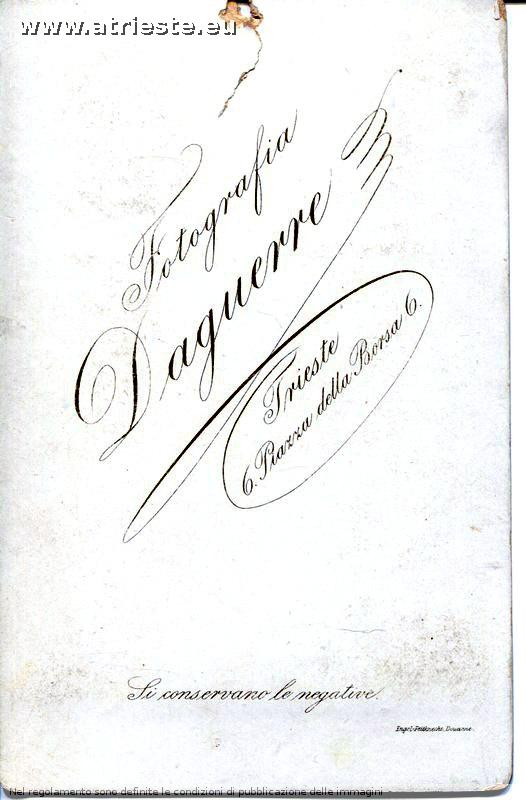 www.atrieste.eu
Fotografia
Daguerre
Trieste
6. Piazza della Borsa 6.
Si conservano le negative.
Douanne.
Nel regolamento sono definite le condizioni di pubblicazione delle immagini -